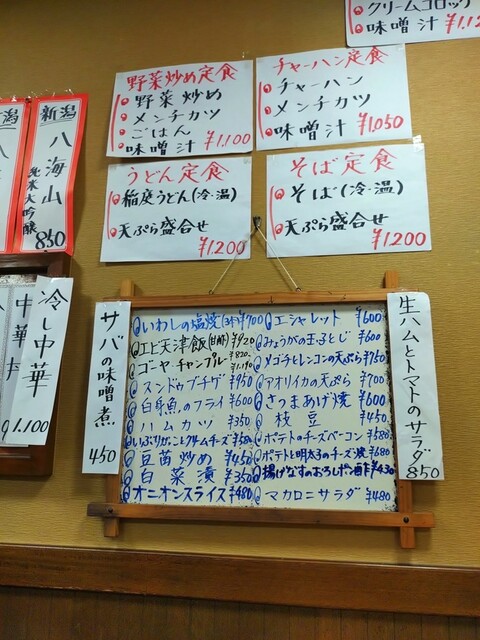 クリームコロッケ
味噌汁
¥1,12
野菜炒め定食
野菜炒め
メンチカツ
ごはん
味噌汁 ¥1,100
チャーハン定食
チャーハン
メンチカツ
味噌汁 ¥1,050
うどん定食
稲庭うどん(冷・温)
天ぷら盛合せ
¥1200
そば定食
そば(冷・温)
天ぷら盛合せ
¥1200
新潟
八海山
純米大吟醸
850
冷し中華
1,100
中華
サバの味噌煮
450
いわしの塩焼(3本)¥700
エビ天津飯
¥920
ゴーヤーチャンプルー ¥820
¥1,190
スンドゥブチゲ ¥950
白身魚のフライ ¥600
ハムカツ ¥350
いぶりがっことクリームチーズ ¥580
豆苗炒め ¥450
白菜漬 ¥350
オニオンスライス ¥480
エシャレット ¥600
みょうがの玉子とじ ¥600
メゴチとレンコンの天ぷら ¥750
アオリイカの天ぷら ¥700
さつまあげ焼 ¥600
枝豆 ¥450
ポテトのチーズベーコン ¥580
ポテトと明太子のチーズ焼 ¥680
揚げなすのおろしポン酢 ¥430
マカロニサラダ ¥480
生ハムとトマトのサラダ
850